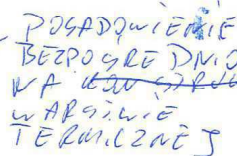 POSADOWIENIE
BEZPOŚREDNIO
NA
WARSTWIE
TERMICZNEJ